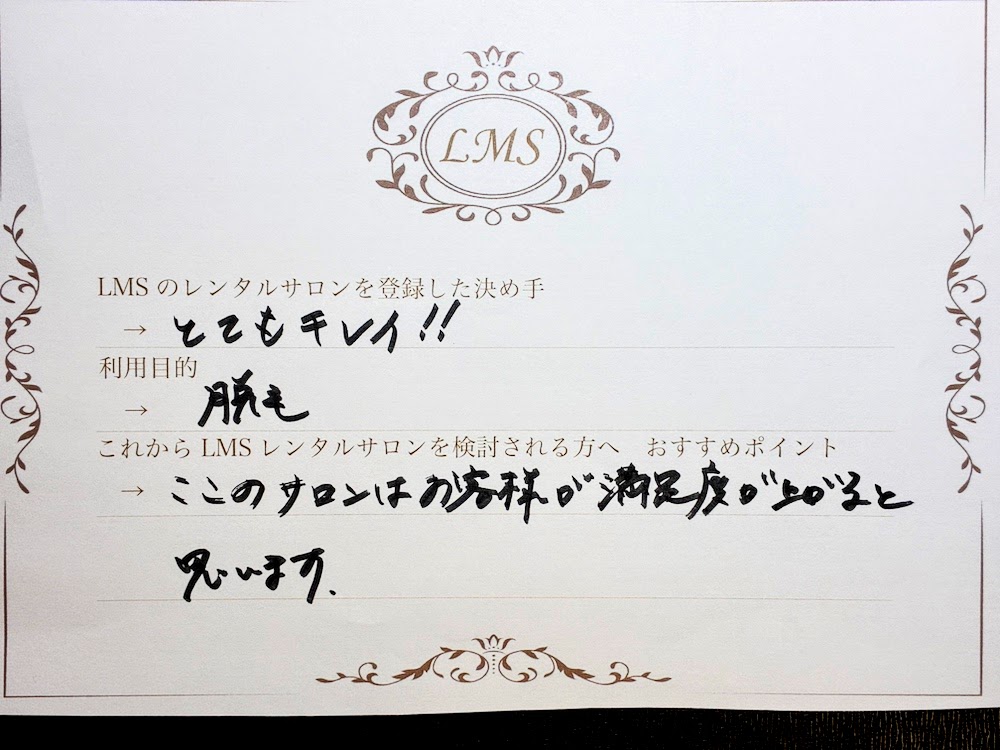 LMS
LMS のレンタルサロンを登録した決め手
→ とてもキレイ!!
利用目的
→ 脱毛
これから LMS レンタルサロンを検討される方へ　おすすめポイント
→ ここのサロンはお客様が満足度が上がると
思います.